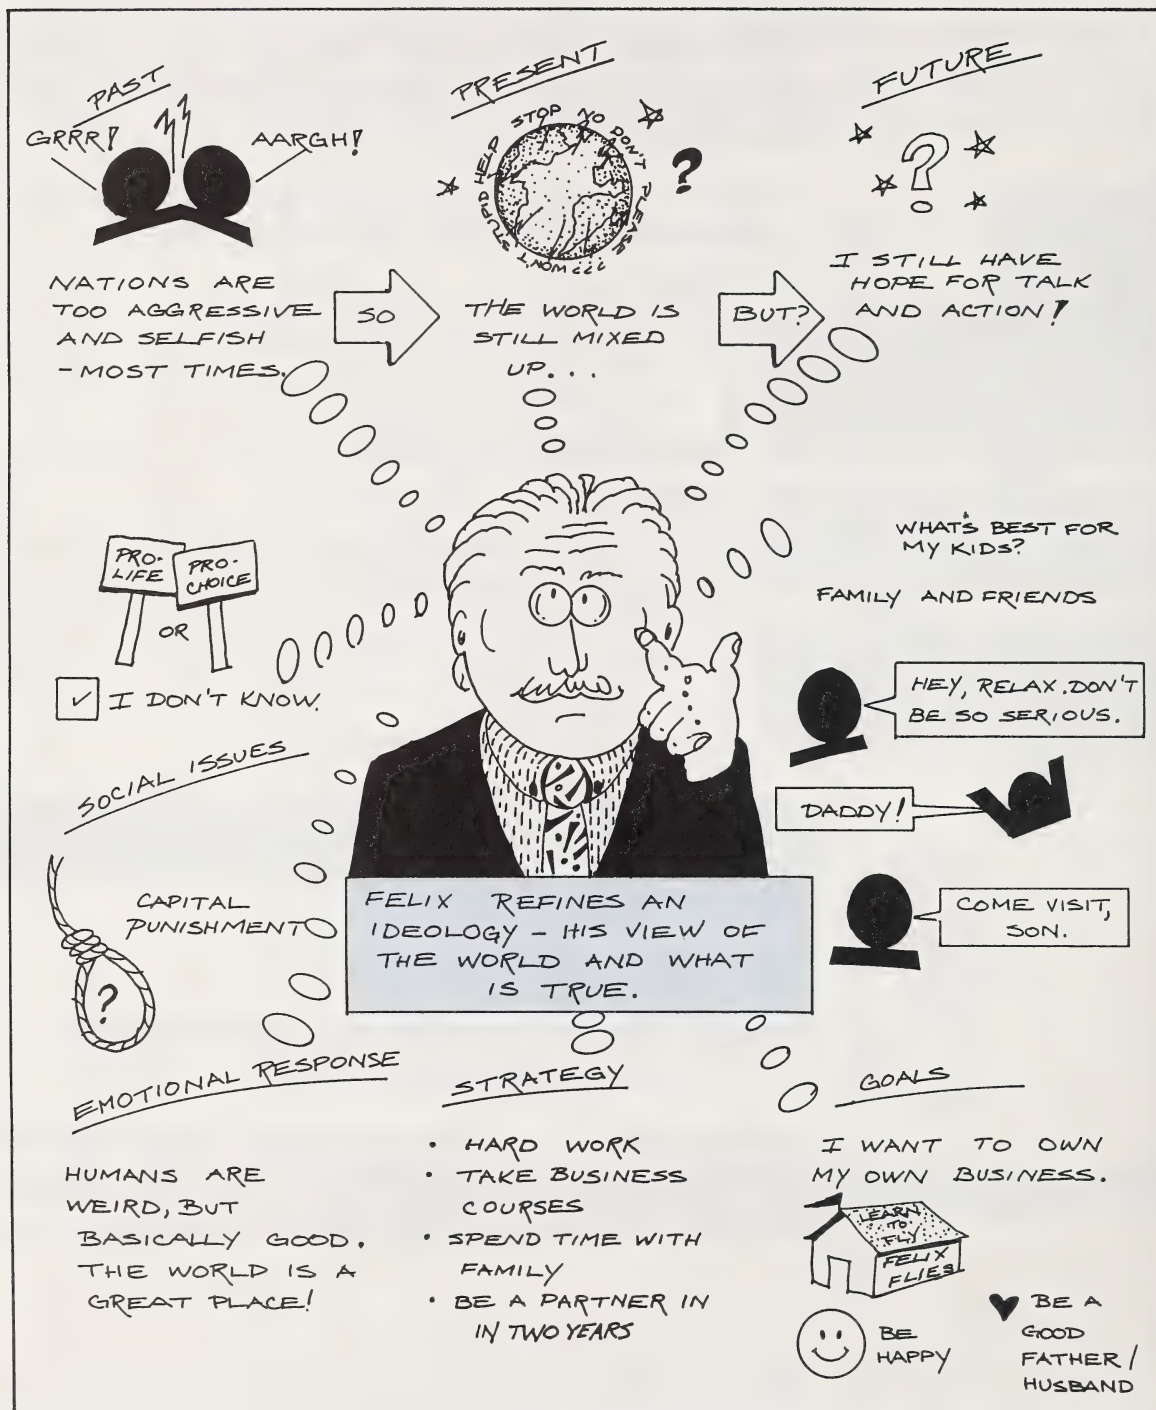 PAST
GRRR!
AARGH!
NATIONS ARE
TOO AGGRESSIVE
AND SELFISH
- MOST TIMES.
SO
PRESENT
STUPID HELP STOP YO DON'T PLEASE ??? WON'T
?
THE WORLD IS
STILL MIXED
UP...
BUT?
FUTURE
?
I STILL HAVE
HOPE FOR TALK
AND ACTION!
PRO-
LIFE
PRO-
CHOICE
OR
✓ I DON'T KNOW.
SOCIAL ISSUES
CAPITAL
PUNISHMENT
?
WHAT'S BEST FOR
MY KIDS?
FAMILY AND FRIENDS
HEY, RELAX. DON'T
BE SO SERIOUS.
DADDY!
COME VISIT,
SON.
FELIX REFINES AN
IDEOLOGY - HIS VIEW OF
THE WORLD AND WHAT
IS TRUE.
EMOTIONAL RESPONSE
HUMANS ARE
WEIRD, BUT
BASICALLY GOOD.
THE WORLD IS A
GREAT PLACE!
STRATEGY
• HARD WORK
• TAKE BUSINESS
COURSES
• SPEND TIME WITH
FAMILY
• BE A PARTNER IN
IN TWO YEARS
GOALS
I WANT TO OWN
MY OWN BUSINESS.
LEARN
TO
FLY
FELIX
FLIES
BE
HAPPY
♥ BE A
GOOD
FATHER /
HUSBAND